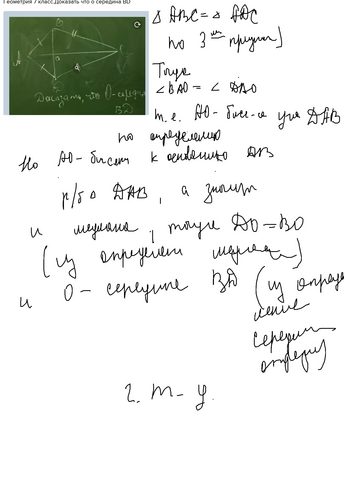 Геометрия 7 класс.Доказать что о середина BD
B
A
C
O
Доказать, что O-середина
BD
△ ABC = △ ADC
по 3 ему признаку
Тогда
∠BAO = ∠ DAO
т.е. AO- бисс-а угла DAB
по определению
Но AO- биссек к основанию DB
р/б △ DAB, а значит
и медиана, тогда DO=BO
(из определен медиан)
и O- середина BD (из определе
ления
середины
отрезка)
ч. т - у.